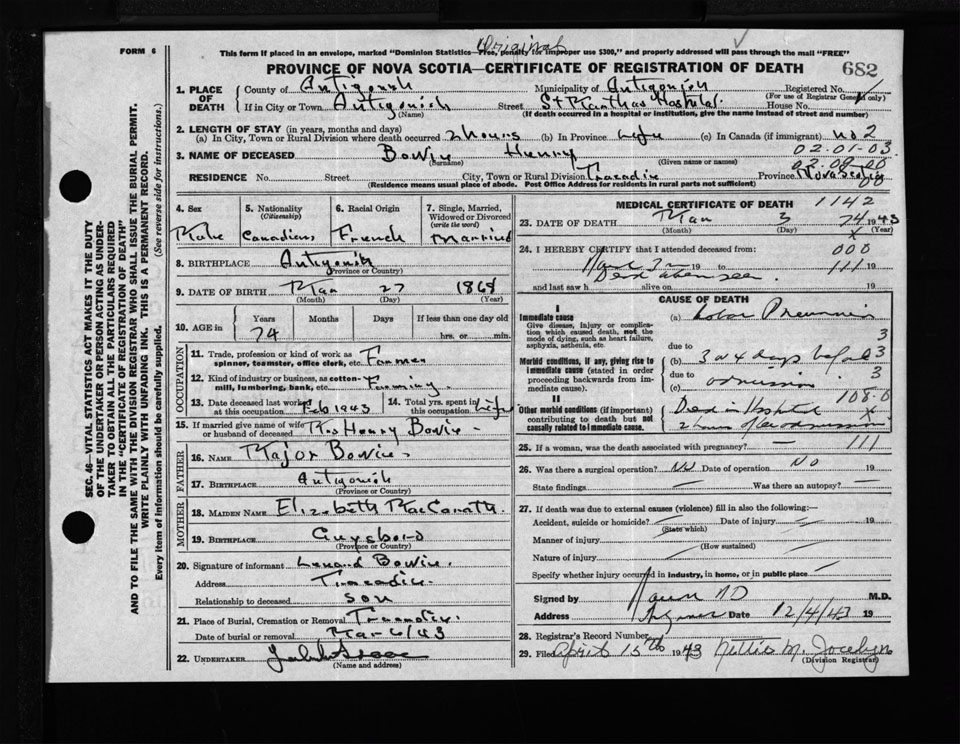 Original
FORM 6
This form if placed in an envelope, marked "Dominion Statistics—Free, penalty for improper use $300," and properly addressed will pass through the mail "FREE"
PROVINCE OF NOVA SCOTIA—CERTIFICATE OF REGISTRATION OF DEATH
682
1. PLACE OF DEATH
County of Antigonish Municipality of Antigonish Registered No.
(For use of Registrar General only)
If in City or Town Antigonish Street St Marthas Hospital House No.
(Name) (If death occurred in a hospital or institution, give the name instead of street and number)
2. LENGTH OF STAY (in years, months and days)
(a) In City, Town or Rural Division where death occurred 2 hours (b) In Province Life (c) In Canada (if immigrant) no 2
02-01-03
3. NAME OF DECEASED Bowie Henry
(Surname) (Given name or names)
RESIDENCE No. Street City, Town or Rural Division Tracadie Province Nova Scotia
(Residence means usual place of abode. Post Office Address for residents in rural parts not sufficient)
4. Sex Male
5. Nationality (Citizenship) Canadian
6. Racial Origin French
7. Single, Married, Widowed or Divorced (write the word) Married
8. BIRTHPLACE Antigonish
(Province or Country)
9. DATE OF BIRTH Mar 27 1868
(Month) (Day) (Year)
10. AGE in Years Months Days If less than one day old
74 hrs. or min.
OCCUPATION
11. Trade, profession or kind of work as spinner, teamster, office clerk, etc. Farmer
12. Kind of industry or business, as cotton-mill, lumbering, bank, etc. Farming
13. Date deceased last worked at this occupation Feb 1943
14. Total yrs. spent in this occupation Life
15. If married give name of wife or husband of deceased Mrs Henry Bowie
FATHER
16. NAME Major Bowie
17. BIRTHPLACE Antigonish
(Province or Country)
MOTHER
18. MAIDEN NAME Elizabeth
19. BIRTHPLACE Guysboro
(Province or Country)
20. Signature of informant Lenard Bowie
Address Tracadie
Relationship to deceased son
21. Place of Burial, Cremation or Removal Tracadie
Date of burial or removal Mar 6/43
22. UNDERTAKER
(Name and address)
MEDICAL CERTIFICATE OF DEATH 1142
23. DATE OF DEATH Mar 3 74 1943
(Month) (Day) (Year)
24. I HEREBY CERTIFY that I attended deceased from: 000
19 to 111 19
Dead when seen
and last saw h alive on 19
CAUSE OF DEATH
I
Immediate cause
Give disease, injury or complication which caused death, not the mode of dying, such as heart failure, asphyxia, asthenia, etc.
(a) Lobar Pneumonia
due to 3
Morbid conditions, if any, giving rise to immediate cause (stated in order proceeding backwards from immediate cause).
(b) 3 or 4 days before 3
due to 3
(c) admission
II
108-0
Other morbid conditions (if important) contributing to death but not causally related to immediate cause.
Died in Hospital
2 hours after admission
25. If a woman, was the death associated with pregnancy? 111
26. Was there a surgical operation? No Date of operation No 19
State findings Was there an autopsy?
27. If death was due to external causes (violence) fill in also the following:—
Accident, suicide or homicide? Date of injury 19
(State which)
Manner of injury
(How sustained)
Nature of injury
Specify whether injury occurred in industry, in home, or in public place
Signed by M.D.
Address Date 12/4/43 19
28. Registrar's Record Number
29. Filed April 15th 1943 Nettie M. Jocelyn
(Division Registrar)
SEC. 46—VITAL STATISTICS ACT MAKES IT THE DUTY OF THE UNDERTAKER OR PERSON ACTING AS UNDERTAKER TO OBTAIN ALL THE PARTICULARS REQUIRED IN THE "CERTIFICATE OF REGISTRATION OF DEATH" AND TO FILE THE SAME WITH THE DIVISION REGISTRAR WHO SHALL ISSUE THE BURIAL PERMIT.
WRITE PLAINLY WITH UNFADING INK. THIS IS A PERMANENT RECORD.
Every item of information should be carefully supplied. (See reverse side for instructions.)